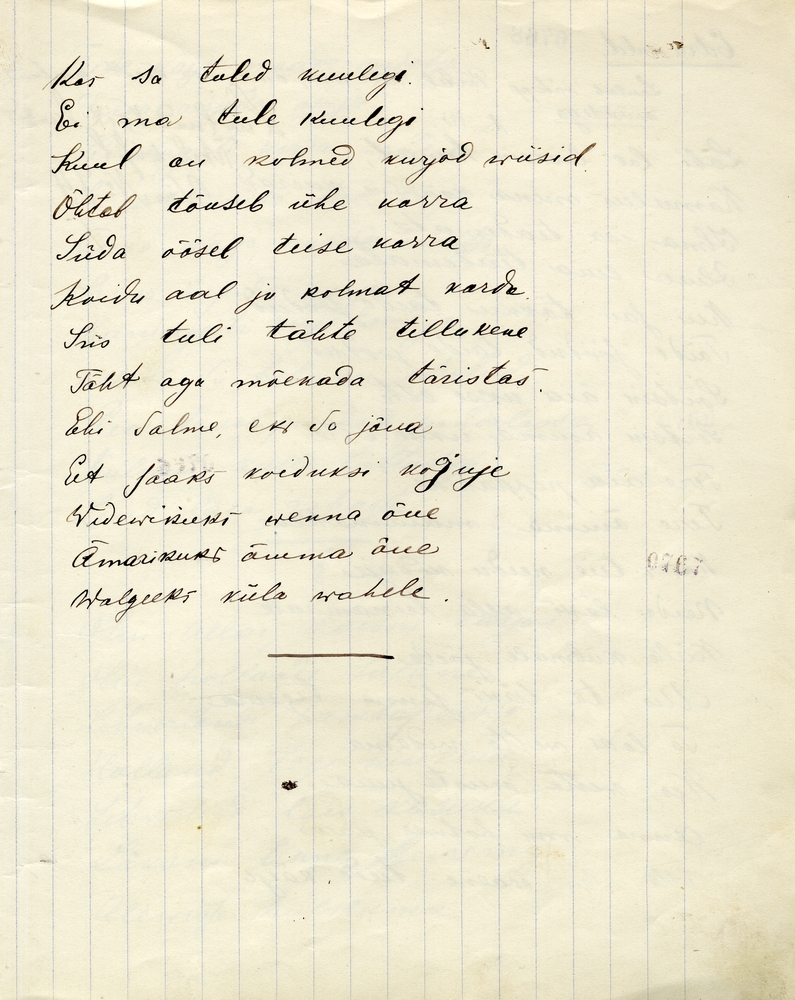 Kas sa tuled kuulegi.
Ei ma tule kuulegi
Kuul on kolmed kurjod wiisid.
Õhtal tõuseb ühe korra
Süda öösel teise korra
Koidu aal ja kolmat korda.
Siis tuli tähte tillukene
Täht aga mõekada täristas.
Ehi Salme, eks sa jõua
Et saaks koiduksi koduje
Widewikuks wenna õue
Ämarikuks ämma õue
Walgeeks küla wahele.